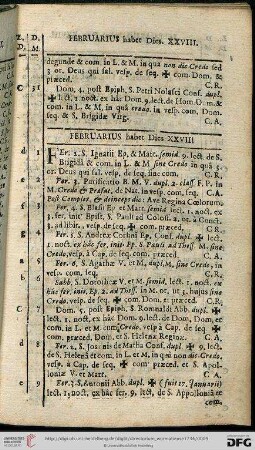 FEBRUARIUS habet Dies. XXVIII.
Z. D.
D. M.
degunde & com. in L. & M. in qua non dic Credo sed
3 or. Deus qui sal. vesp. de seq. ✠ com. Dom. &
præced. C.R.
C 31 Dom. 4. post Epiph. S. Petri Nolasci Conf. dupl.
✠ lect. 1. noct. ex hâc Dom. 9. lect. de Hom. D. m. &
com. in L. & M. in quâ crea. in vesp. com. Dom.
seq. & S. Brigidæ Virg. C.A.
FEBRUARIUS habet Dies XXVIII
d 1 Fer. 2. S. Ignatii Ep. & Mart. semid. 9. lect. de S.
Brigida & com. in L. & M sine Credo in quâ 3.
or. Deus qui sal. vesp. de seq. sine com. C.R.
e 2 Fer. 3. Purificatio B. M. V. dupl. 2. class. F. P. in
M. Credo & Præfat. de Nat. in vesp. com. seq. C.A.
Post Complet. & deinceps dic: Ave Regina Cœlorum.
3 Fer. 4. S. Blasii Ep. et Mart. semid lect. 1. noct. ex
3. fer. init' Epist. S. Pauli ad Coloss. 2. or. A cunct.
3. ad libit. vesp. de seq. ✠ com. præced. C.R.
g 4 Fer. 5. S. Andreæ Corsini Ep. Conf. dupl. ✠ lect.
1. noct. ex hâc fer. init' Ep. S. Pauli ad Thess. M. sine
Credo, vesp. à Cap. de seq. com. præced. C.A.
5 Fer. 6. S. Agathæ V. et M. dupl. M, sine Credo, in
vesp. com. seq. C.R.
b 6 Sabb. S. Dorotheæ V. et M. semid, lect. 1. noct. ex
hâc fer. init. Ep. 2. ad Thess. in M. or. ut 3. hujus sine
Credo. vesp. de seq. ✠ com. Dom. et præced. C.R.
C 7 Dom. 5. post Epiph S. Romualdi Abb. dupl. ✠
lect. 1. noct. ex hâc Dom. 9. lect. de Dom. Dom, et
com. in L. et M. com Credo vesp à Cap. de seq ✠
com præced. Dom. et S. Helenæ Reginæ C.A.
d 8 Fer. 2. S. Joannis de Matha Conf. dupl. ✠ 9. lect.
de S. Helenâ et com. in L. et M. in quâ non dic Credo,
vesp. à Cap. de seq. ✠ com. præced. et S. Apol-
loniæ V. et Mart. C.A.
e 9 Fer. 3. S. Antonii Abb. dupl. ✠ ( fuit 17. Januarii )
lect. 1. noct. ex hâc fer. 9. lect. de S. Appolloniâ et
com.
DFG